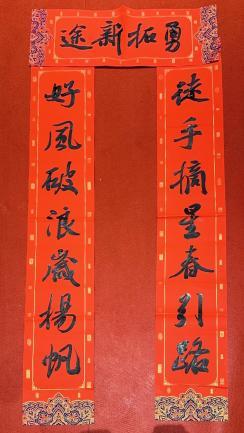 勇拓新途
徒手摘星春引路
好风破浪岁扬帆